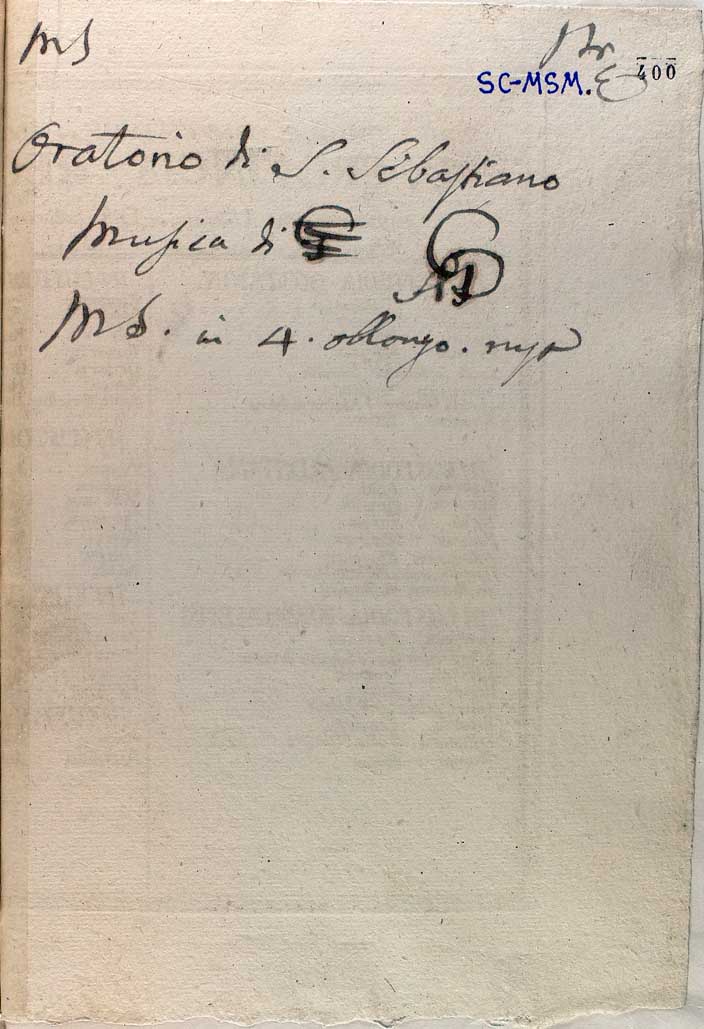 MS
SC-MSM. 400
Oratorio di S. Sebastiano
Musica di
MS. in 4. oblongo.